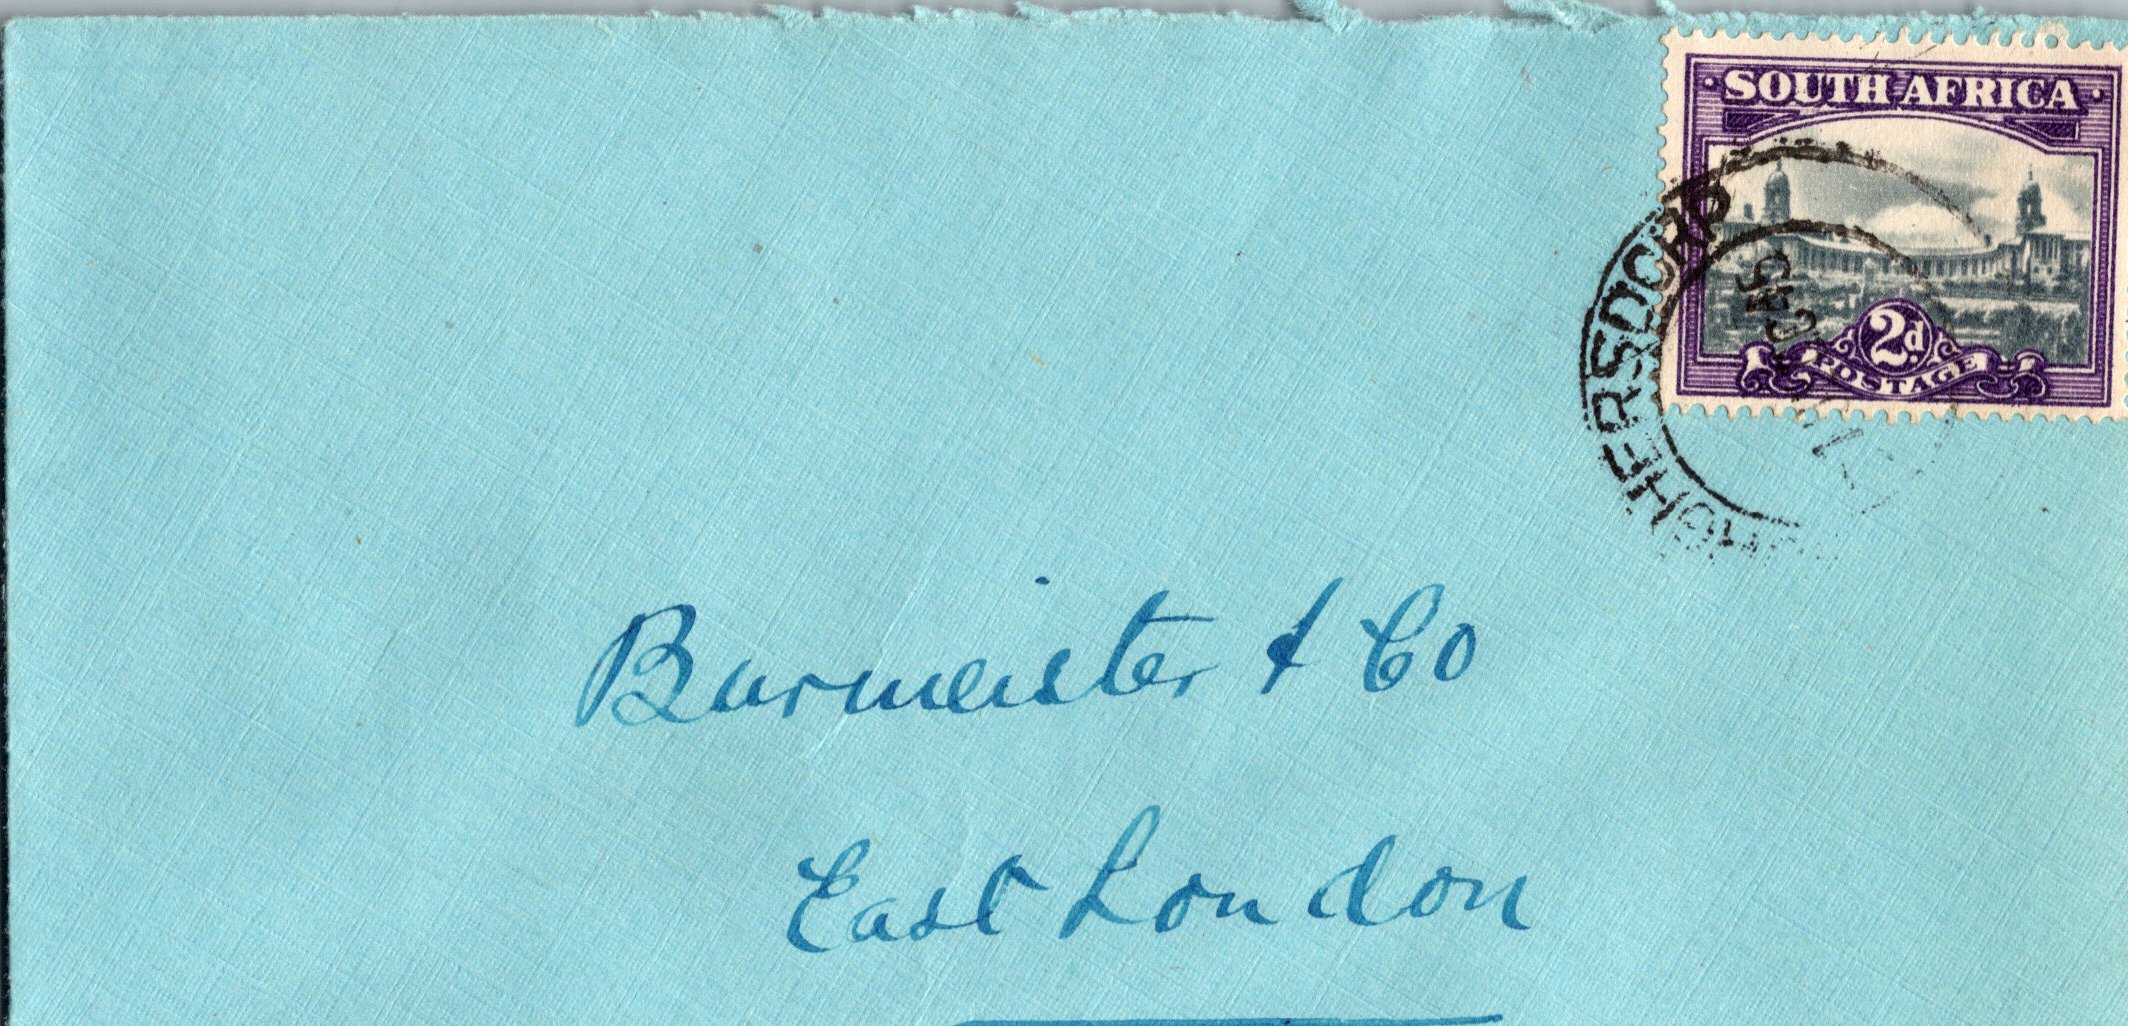 SOUTH AFRICA
2d
POSTAGE
Burmeister & Co
East London